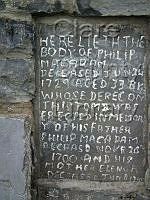 HERE LIETH THE
BODY OF PHILIP
MACADAM
DECEASED JUN 24
1729 AGED 33 BY
WHOSE DEREC ON
THIS TOMB WAS
ERECTED IN MEMOR
Y OF HIS FATHER
PHILIP MACADAM
DECEASED NOV 26
1700 AND HIS
MOTHER ELENOR
DECEASED